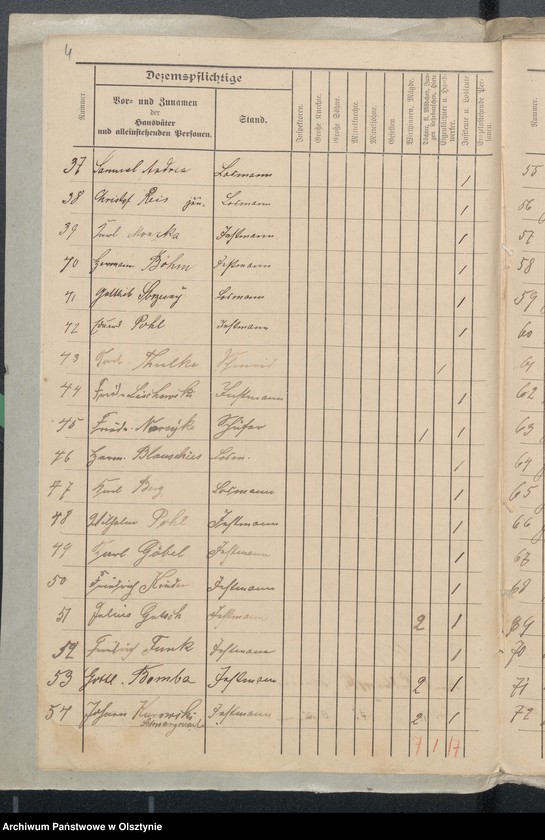 4
Nummer.
Dezemspflichtige
Vor- und Zunamen
der
Hausväter
und alleinstehenden Personen.
Stand.
Inspektoren.
Große Knechte.
Große Söhne.
Mittelknechte.
Mittelsöhne.
Gesellen.
Wirthinnen, Mägde.
Eigenkäthner u. Handwerker.
Instleute u. Losleute
Einzelnstehende Personen.
Nummer.
37 Samuel Andrea Losmann /
38 Christof Reis jun. Losmann /
39 Karl Instmann /
40 Hermann Böhm Instmann /
41 Gottlieb Losmann /
42 Eduard Pohl Instmann /
43 Thulke Schmied /
44 Friedr. Lischewski Instmann /
45 Friedr. Schäfer / /
46 Herm. Blauschies /
47 Karl Berg Losmann /
48 Wilhelm Pohl Instmann /
49 Karl Göbel Instmann /
50 Friedrich Instmann /
51 Julius Gutsch Instmann 2 /
52 Friedrich Funk Instmann /
53 Gottl. Bomba Instmann 2 /
54 Johann Kurowski Instmann 2 /
7 1 17
55
56
57
58
59
60
61
62
63
64
65
66
67
68
69
70
71
72
Archiwum Państwowe w Olsztynie